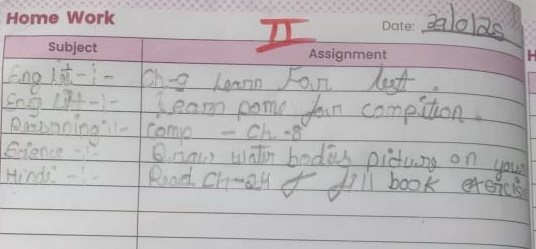 Home Work
II
Date:
Subject Assignment
Eng lit -:- Ch-9 Learn For test.
Eng lit -:- Learn pome for compition.
comp - Ch-8
Science -:- Draw water bodies picture on your
Hindi -:- Read Ch-24 & fill book exercise
H